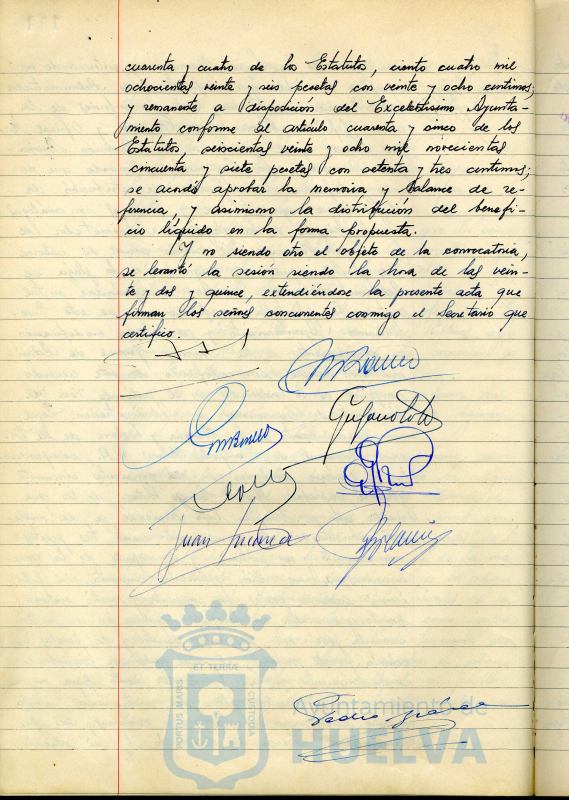 cuarenta y cuatro de los Estatutos, ciento cuatro mil
ochocientas veinte y seis pesetas con veinte y ocho centimos;
y remanente a disposición del Excelentísimo Ayunta-
miento conforme al artículo cuarenta y cinco de los
Estatutos, seiscientas veinte y ocho mil novecientas
cincuenta y siete pesetas con setenta y tres centimos;
se acordó aprobar la memoria y balance de re-
ferencia, y asimismo la distribución del benefi-
cio líquido en la forma propuesta.
Y no siendo otro el objeto de la convocatoria,
se levantó la sesión siendo la hora de las vein-
te y dos y quince, extendiéndose la presente acta que
firman los señores concurrentes conmigo el Secretario que
certifico.
Juan
ET TERRÆ
PORTUS MARIS
CUSTODIA
Pedro
Ayuntamiento de
HUELVA